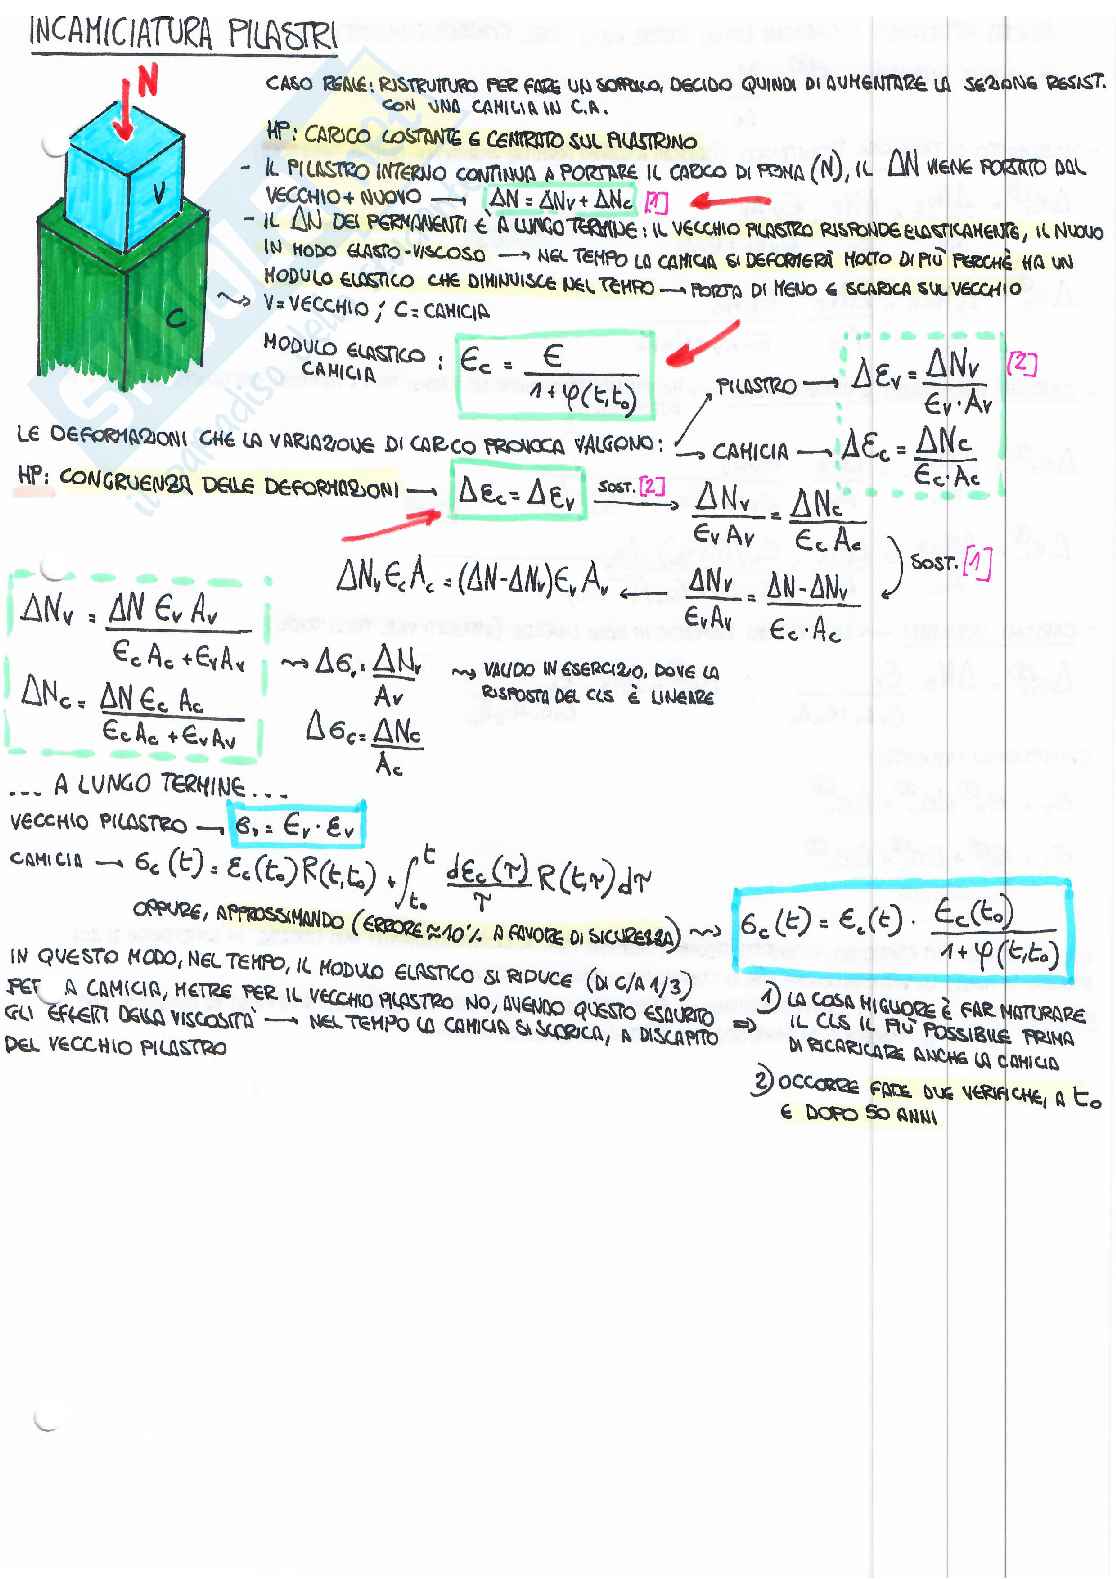 INCAMICIATURA PILASTRI
N
V
C
CASO REALE: RISTRUTTURO PER FARE UN SOPPALCO, DECIDO QUINDI DI AUMENTARE LA SEZIONE RESIST.
CON UNA CAMICIA IN C.A.
HP: CARICO COSTANTE E CENTRATO SUL PILASTRINO
- IL PILASTRO INTERNO CONTINUA A PORTARE IL CARICO DI PRIMA (N), IL ΔN VIENE PORTATO DAL
VECCHIO + NUOVO → ΔN = ΔNv + ΔNc [1]
- IL ΔN DEI PERMANENTI È A LUNGO TERMINE: IL VECCHIO PILASTRO RISPONDE ELASTICAMENTE, IL NUOVO
IN MODO ELASTO-VISCOSO → NEL TEMPO LA CAMICIA SI DEFORMERÀ MOLTO DI PIÙ PERCHÈ HA UN
MODULO ELASTICO CHE DIMINUISCE NEL TEMPO → PORTA DI MENO E SCARICA SUL VECCHIO
⇝ V = VECCHIO ; C = CAMICIA
MODULO ELASTICO CAMICIA : Ec = E / (1 + φ(t,t₀))
LE DEFORMAZIONI CHE LA VARIAZIONE DI CARICO PROVOCA VALGONO:
PILASTRO → Δεv = ΔNv / (Ev · Av) [2]
CAMICIA → Δεc = ΔNc / (Ec · Ac)
HP: CONGRUENZA DELLE DEFORMAZIONI → Δεc = Δεv SOST. [2] → ΔNv / (Ev Av) = ΔNc / (Ec Ac)
SOST. [1]
ΔNv Ec Ac = (ΔN - ΔNv) Ev Av ← ΔNv / (Ev Av) = (ΔN - ΔNv) / (Ec · Ac)
ΔNv = ΔN Ev Av / (Ec Ac + Ev Av)
ΔNc = ΔN Ec Ac / (Ec Ac + Ev Av)
⇝ Δσv = ΔNv / Av
Δσc = ΔNc / Ac
⇝ VALIDO IN ESERCIZIO, DOVE LA
RISPOSTA DEL CLS È LINEARE
... A LUNGO TERMINE...
VECCHIO PILASTRO → σv = Ev · εv
CAMICIA → σc(t) = εc(t₀) R(t,t₀) + ∫ₜ₀ᵗ dεc(τ)/τ R(t,τ) dτ
OPPURE, APPROSSIMANDO (ERRORE ≈ 10% A FAVORE DI SICUREZZA) ⇝ σc(t) = εc(t) · Ec(t₀) / (1 + φ(t,t₀))
IN QUESTO MODO, NEL TEMPO, IL MODULO ELASTICO SI RIDUCE (DI C/A 1/3)
PER A CAMICIA, METRE PER IL VECCHIO PILASTRO NO, AVENDO QUESTO ESAURITO
GLI EFFETTI DELLA VISCOSITÀ → NEL TEMPO LA CAMICIA SI SCARICA, A DISCAPITO
DEL VECCHIO PILASTRO
⇒ 1) LA COSA MIGLIORE È FAR MATURARE
IL CLS IL PIÙ POSSIBILE PRIMA
DI RICARICARE ANCHE LA CAMICIA
2) OCCORRE FARE DUE VERIFICHE, A t₀
E DOPO 50 ANNI